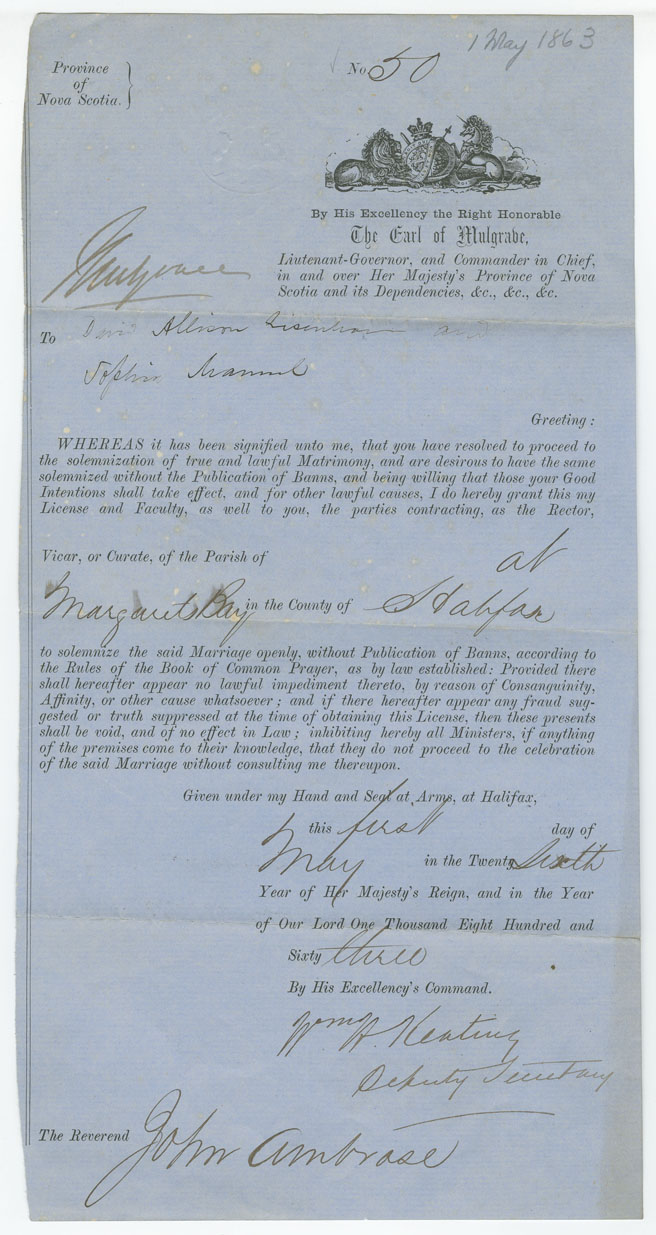 1 May 1863
Province
of
Nova Scotia.
No 50
By His Excellency the Right Honorable
The Earl of Mulgrave,
Mulgrave
Liutenant-Governor, and Commander in Chief,
in and over Her Majesty's Province of Nova
Scotia and its Dependencies, &c., &c., &c.
To David Allison Eisenhaur and
Sophia
Greeting :
WHEREAS it has been signified unto me, that you have resolved to proceed to
the solemnization of true and lawful Matrimony, and are desirous to have the same
solemnized without the Publication of Banns, and being willing that those your Good
Intentions shall take effect, and for other lawful causes, I do hereby grant this my
License and Faculty, as well to you, the parties contracting, as the Rector,
Vicar, or Curate, of the Parish of at
Margarets Bay in the County of Halifax
to solemnize the said Marriage openly, without Publication of Banns, according to
the Rules of the Book of Common Prayer, as by law established: Provided there
shall hereafter appear no lawful impediment thereto, by reason of Consanguinity,
Affinity, or other cause whatsoever ; and if there hereafter appear any fraud sug-
gested or truth suppressed at the time of obtaining this License, then these presents
shall be void, and of no effect in Law ; inhibiting hereby all Ministers, if anything
of the premises come to their knowledge, that they do not proceed to the celebration
of the said Marriage without consulting me thereupon.
Given under my Hand and Seal at Arms, at Halifax,
this first day of
May in the Twenty Sixth
Year of Her Majesty's Reign, and in the Year
of Our Lord One Thousand Eight Hundred and
Sixty three
By His Excellency's Command.
Wm H. Keating
Deputy Secretary
The Reverend John Ambrose